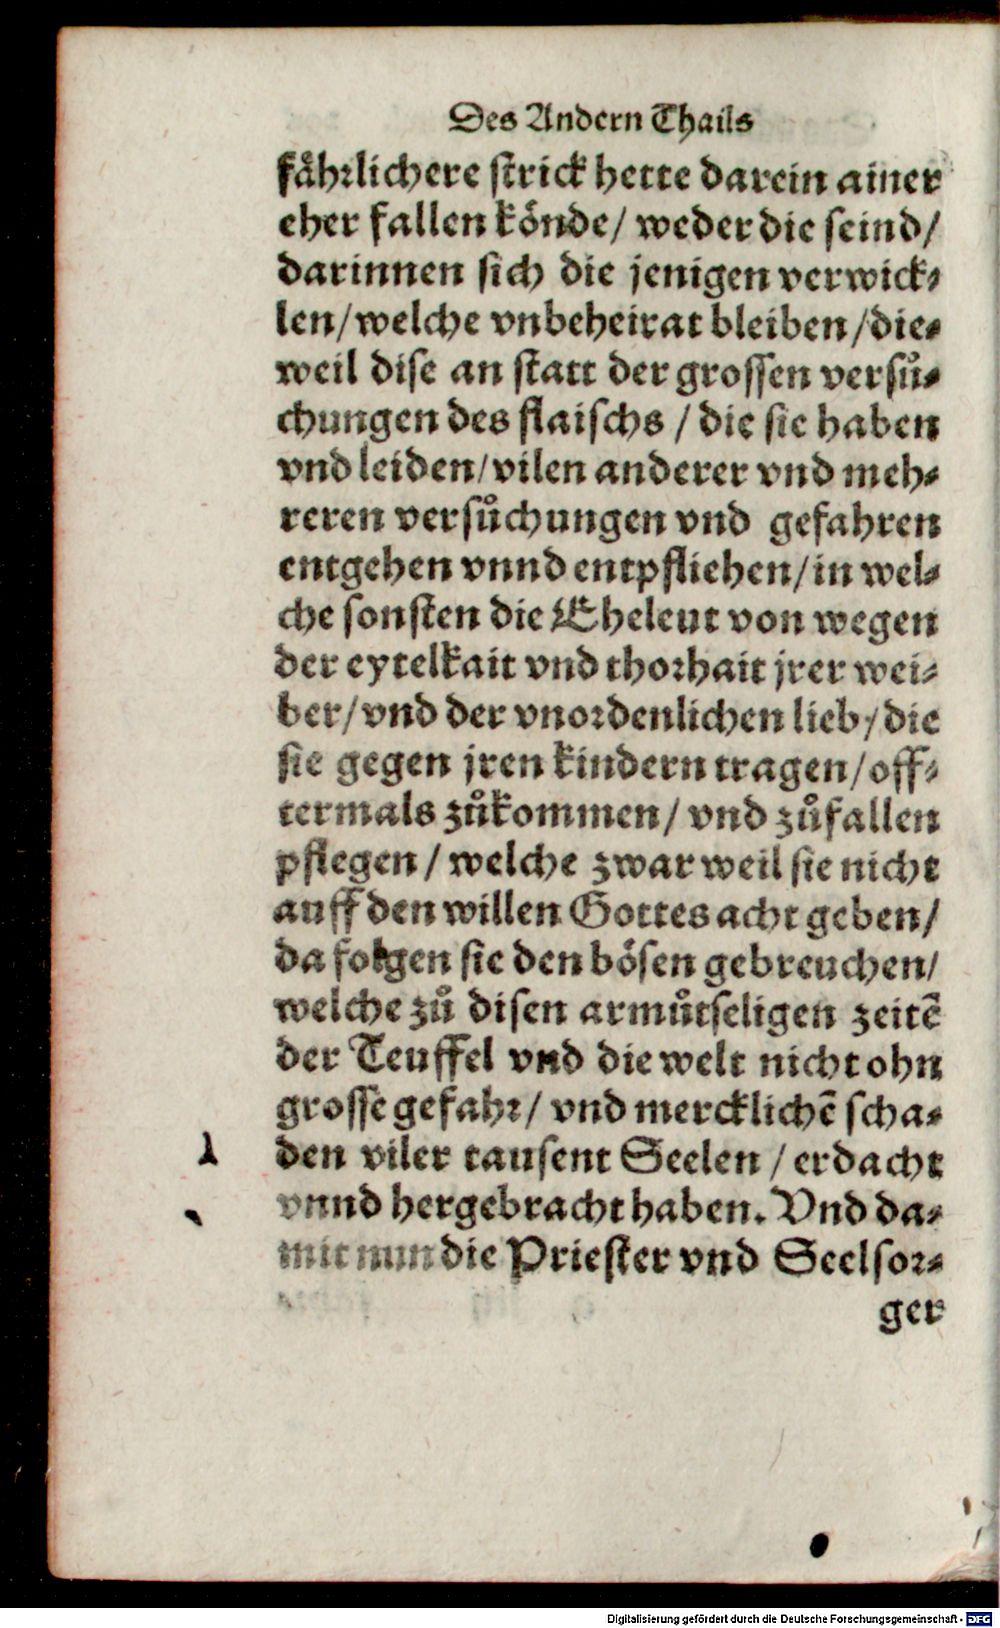 Des Andern Thails
fährlichere strick hette darein ainer
eher fallen könde/ weder die seind/
darinnen sich die jenigen verwick-
len/welche vnbeheirat bleiben/die-
weil dise an statt der grossen versů-
chungen des flaischs / die sie haben
vnd leiden/vilen anderer vnd meh-
reren versůchungen vnd gefahren
entgehen vnnd entpfliehen/in wel-
che sonsten die Eheleut von wegen
der eytelkait vnd thorhait jrer wei-
ber/vnd der vnordenlichen lieb/die
sie gegen jren kindern tragen/off-
termals zůkommen/ vnd zůfallen
pflegen / welche zwar weil sie nicht
auff den willen Gottes acht geben/
da folgen sie den bösen gebreuchen/
welche zů disen armůtseligen zeitē
der Teuffel vnd die welt nicht ohn
grosse gefahr/ vnd mercklichē scha-
den viler tausent Seelen / erdacht
vnnd hergebracht haben. Vnd da-
mit nun die Priester vnd Seelsor-
ger
Digitalisierung gefördert durch die Deutsche Forschungsgemeinschaft - DFG